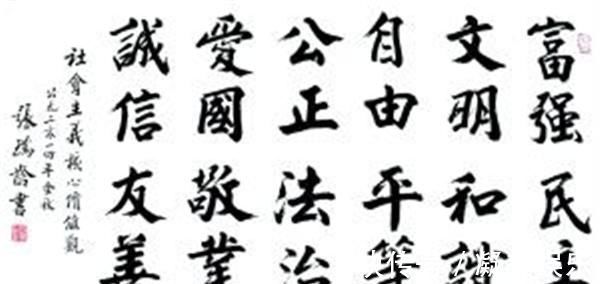 富强民主
文明和諧
自由平等
公正法治
愛國敬業
誠信友善
社會主義核心價值觀
公元二零一四年金秋
張瑞齡書